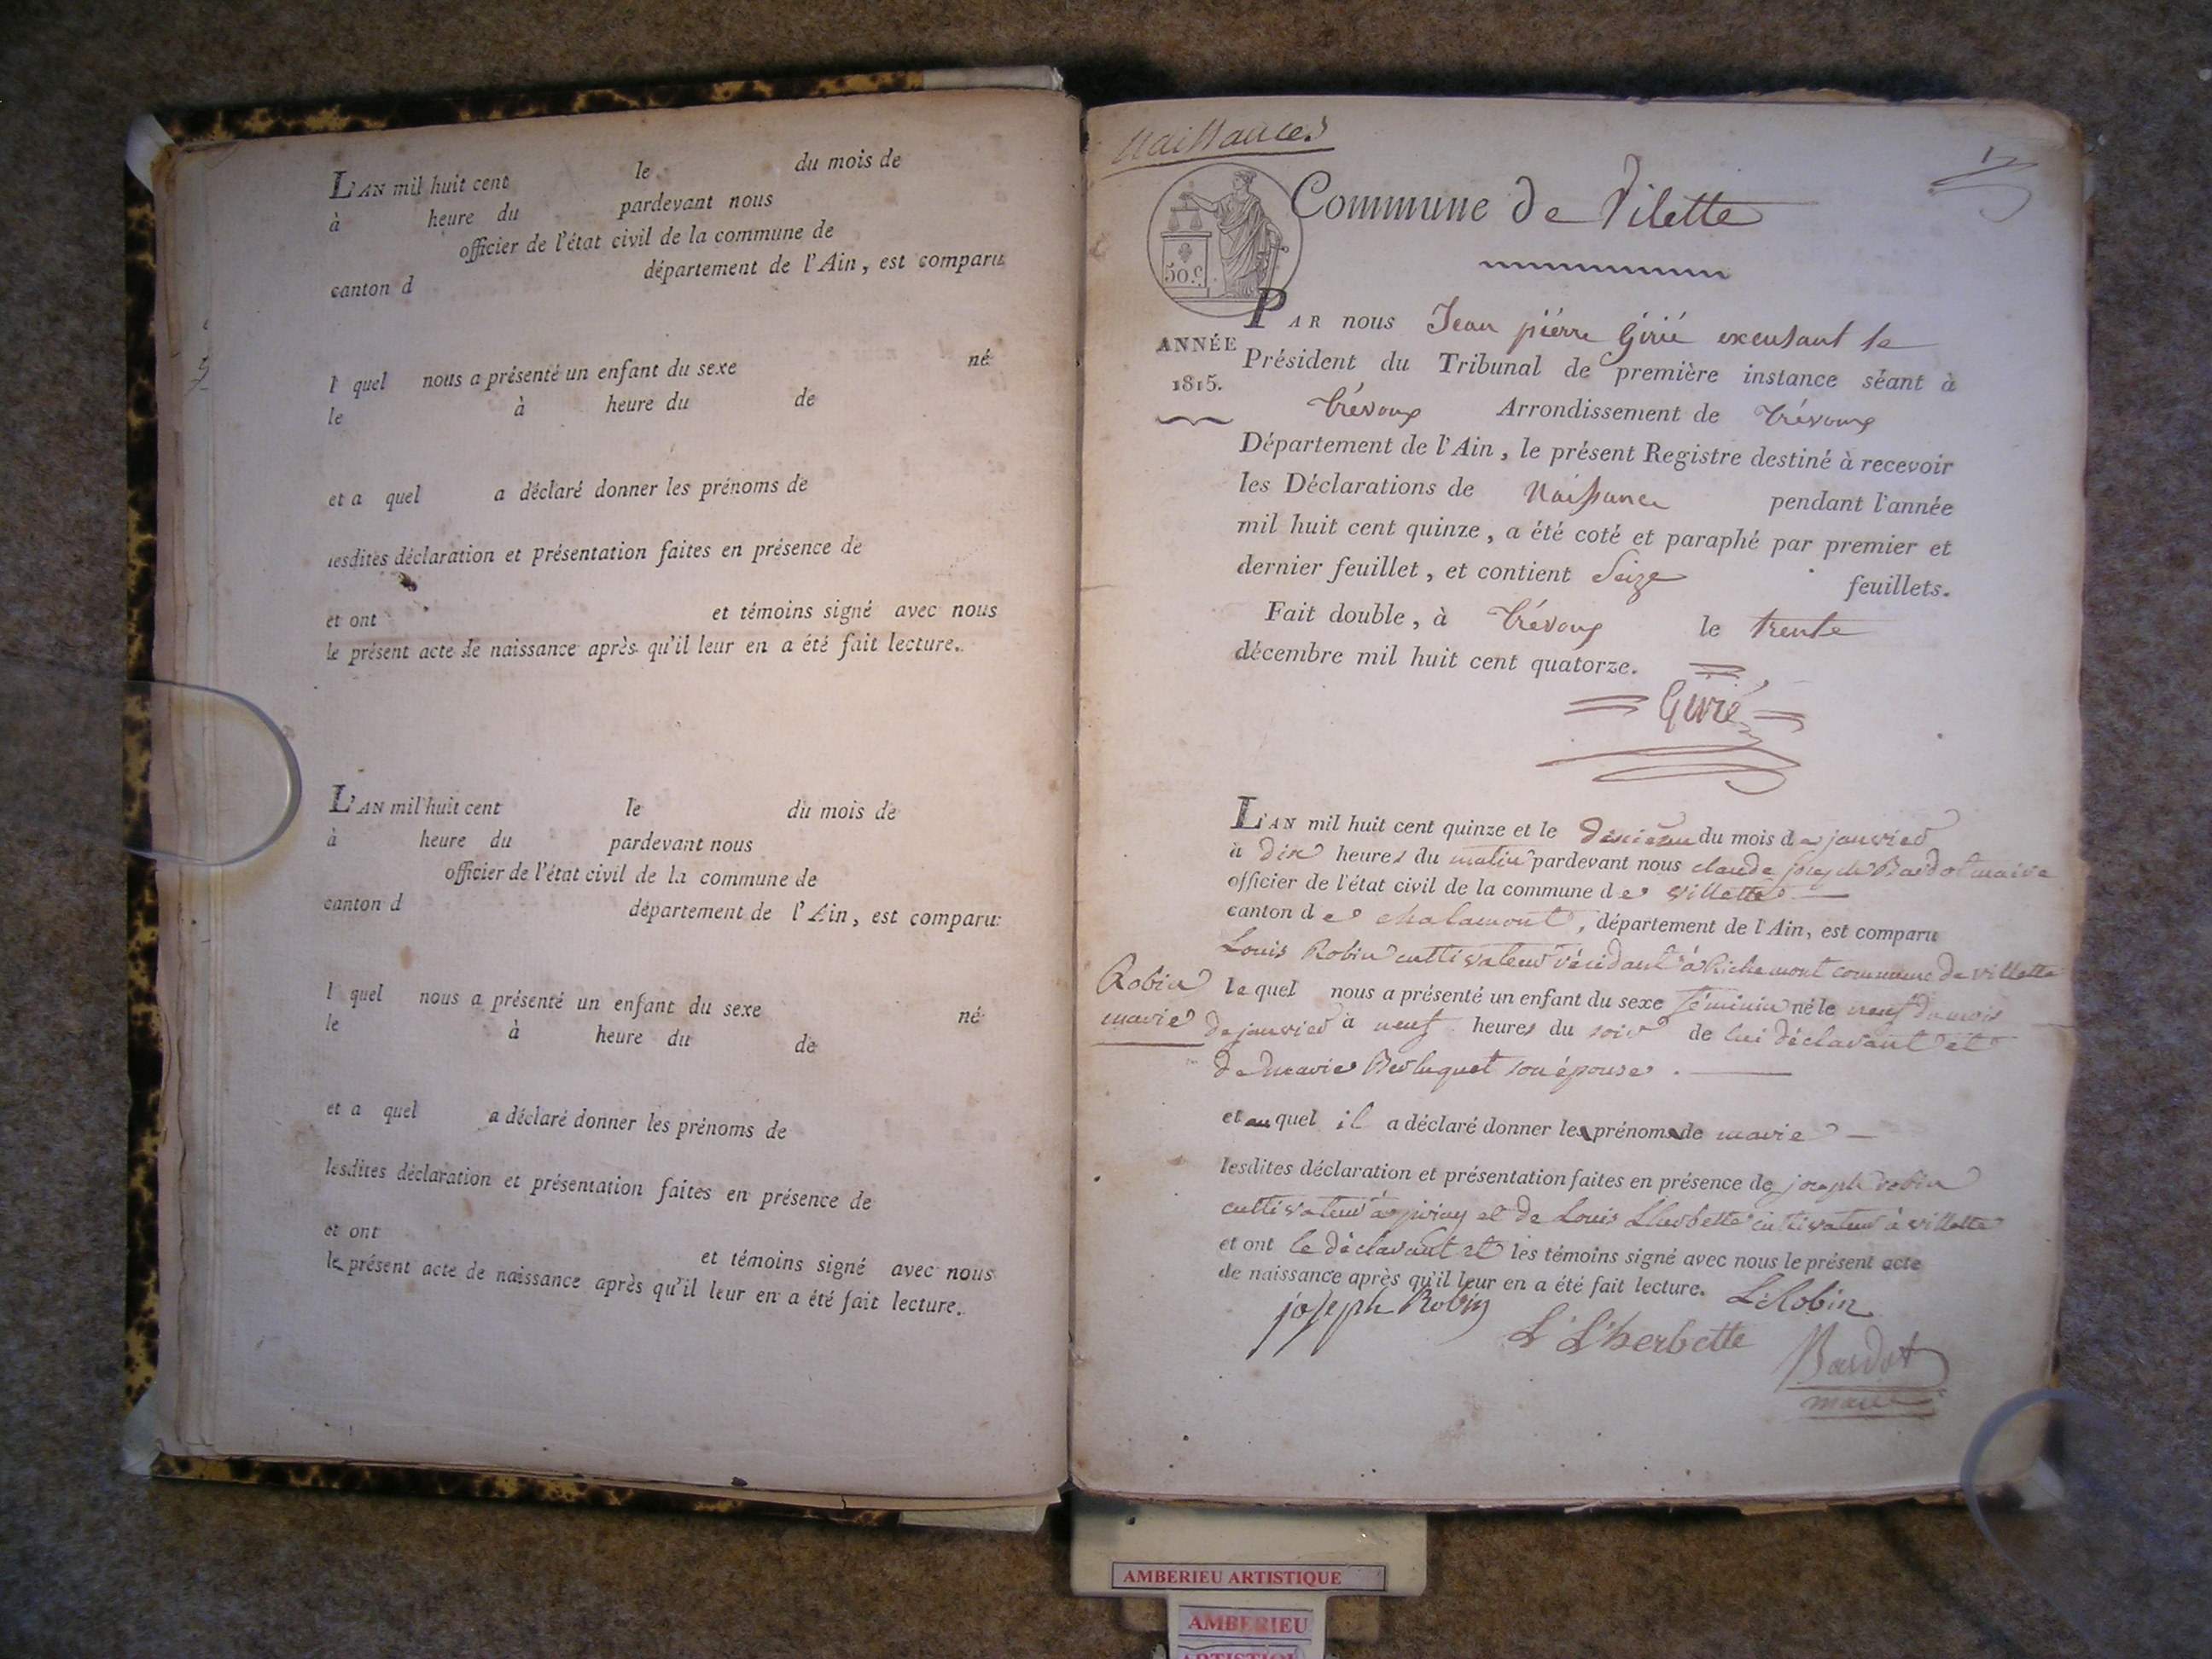 L'AN mil huit cent le du mois de
à heure du pardevant nous
officier de l'état civil de la commune de
canton d département de l'Ain, est comparu
l quel nous a présenté un enfant du sexe né
le à heure du de
et a quel a déclaré donner les prénoms de
lesdites déclaration et présentation faites en présence de
et ont et témoins signé avec nous
le présent acte de naissance après qu'il leur en a été fait lecture.
L'AN mil huit cent le du mois de
à heure du pardevant nous
officier de l'état civil de la commune de
canton d département de l'Ain, est comparu
l quel nous a présenté un enfant du sexe né
le à heure du de
et a quel a déclaré donner les prénoms de
lesdites déclaration et présentation faites en présence de
et ont et témoins signé avec nous
le présent acte de naissance après qu'il leur en a été fait lecture.
Naissances
1
Commune de Vilette
50 c.
ANNÉE
1815.
PAR nous Jean pierre Girié excusant le
Président du Tribunal de première instance séant à
Trévoux Arrondissement de Trévoux
Département de l'Ain, le présent Registre destiné à recevoir
les Déclarations de Naissance pendant l'année
mil huit cent quinze, a été coté et paraphé par premier et
dernier feuillet, et contient Seize feuillets.
Fait double, à Trévoux le trente
décembre mil huit cent quatorze.
Girié
L'AN mil huit cent quinze et le dixième du mois de janvier
à dix heures du matin pardevant nous claude joseph Bardot maire
officier de l'état civil de la commune de villette
canton de chalamont, département de l'Ain, est comparu
Louis Robin cultivateur résidant à Richemont commune de villette
Robin
marie
le quel nous a présenté un enfant du sexe féminin né le neuf du mois
de janvier à neuf heures du soir de lui déclarant et
de marie Berluquet son épouse.
et au quel il a déclaré donner les prénoms de marie
lesdites déclaration et présentation faites en présence de joseph robin
cultivateur à priay et de Louis Lherbette cultivateur à villette
et ont le déclarant et les témoins signé avec nous le présent acte
de naissance après qu'il leur en a été fait lecture. L. Robin
joseph Robin
L L'herbette
Bardot
maire
AMBERIEU ARTISTIQUE
AMBERIEU
ARTISTIQUE